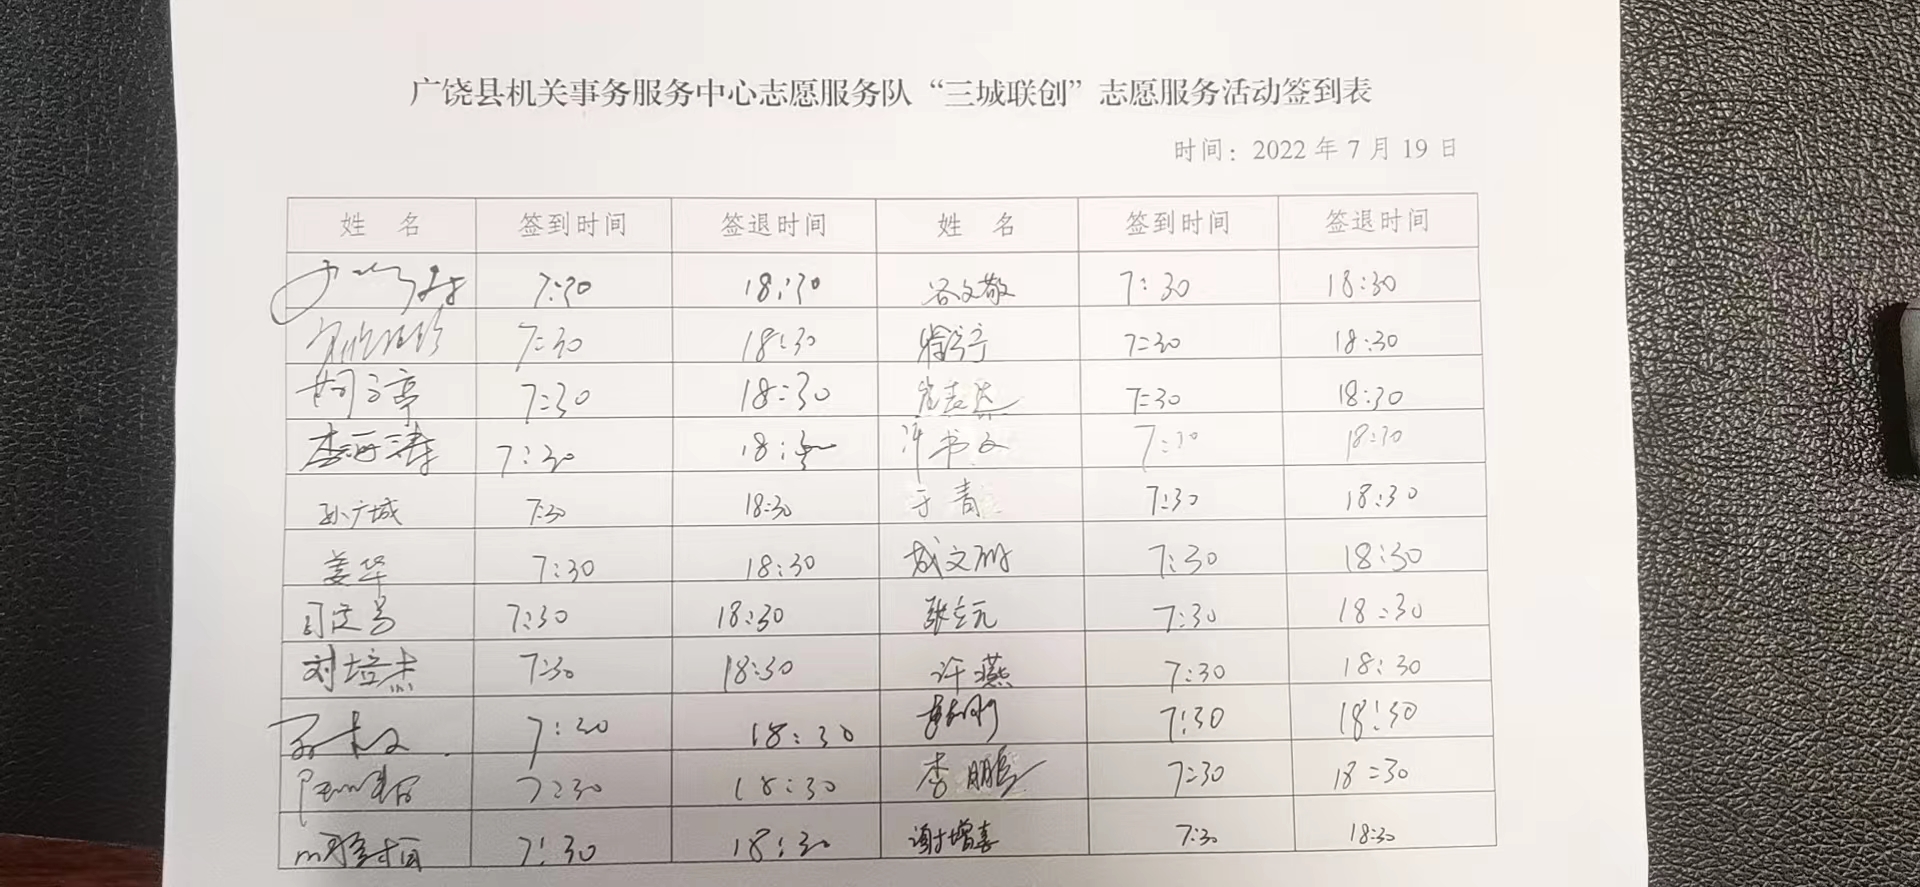 广饶县机关事务服务中心志愿服务队“三城联创”志愿服务活动签到表
时间：2022年7月19日
姓 名 签到时间 签退时间 姓 名 签到时间 签退时间
7:30 18:30 谷文敬 7:30 18:30
7:30 18:30 7:30 18:30
7:30 18:30 7:30 18:30
李海涛 7:30 18:30 许书文 7:30 18:30
孙广城 7:30 18:30 于青 7:30 18:30
姜华 7:30 18:30 成文 7:30 18:30
7:30 18:30 张立元 7:30 18:30
刘培杰 7:30 18:30 许燕 7:30 18:30
7:30 18:30 7:30 18:30
7:30 18:30 李鹏 7:30 18:30
7:30 18:30 谢增喜 7:30 18:30